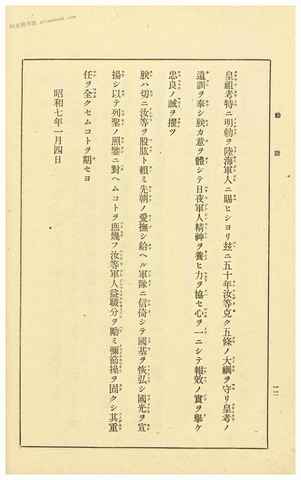 勅諭
皇祖考特ニ明勅ヲ陸海軍人ニ賜ヒシヨリ玆ニ五十年汝等克ク五條ノ大綱ヲ守リ皇考ノ
遺訓ヲ奉シ朕カ意ヲ體シテ日夜軍人精神ヲ養ヒ力ヲ協セ心ヲ一ニシテ報效ノ實ヲ擧ケ
忠良ノ誠ヲ擢ツ
朕ハ切ニ汝等ヲ股肱ト頼ミ先朝ノ愛撫シ給ヘル軍隊ニ信倚シテ國基ヲ恢弘シ國光ヲ宣
揚シ以テ列聖ノ照鑒ニ對ヘムコトヲ庶幾フ汝等軍人益職分ヲ勵ミ彌節操ヲ固クシ其重
任ヲ全クセムコトヲ期セヨ
昭和七年一月四日